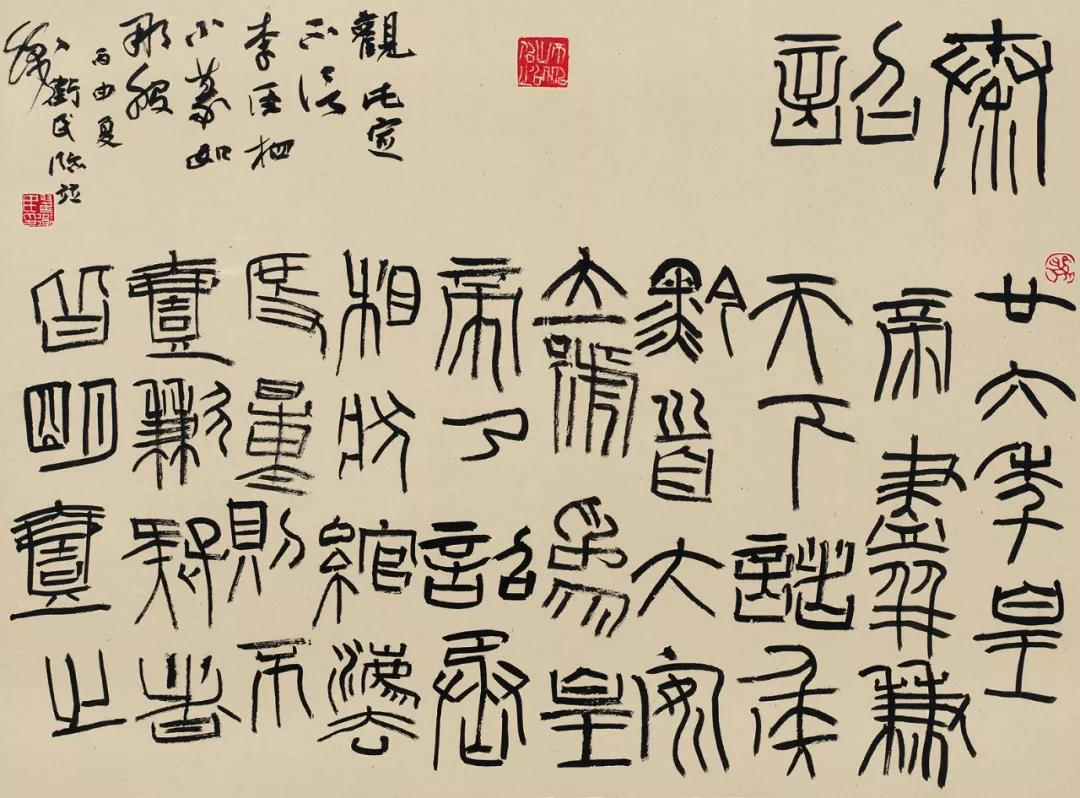 秦
詔
廿六年皇
帝盡并兼
天下諸矦
黔首大安
立號為皇
帝乃詔丞
相狀綰灋
度量則不
壹歉疑者
皆明壹之
觀此定
不信
李丞相
小篆如
那般
丙申夏
衛民臨並
識